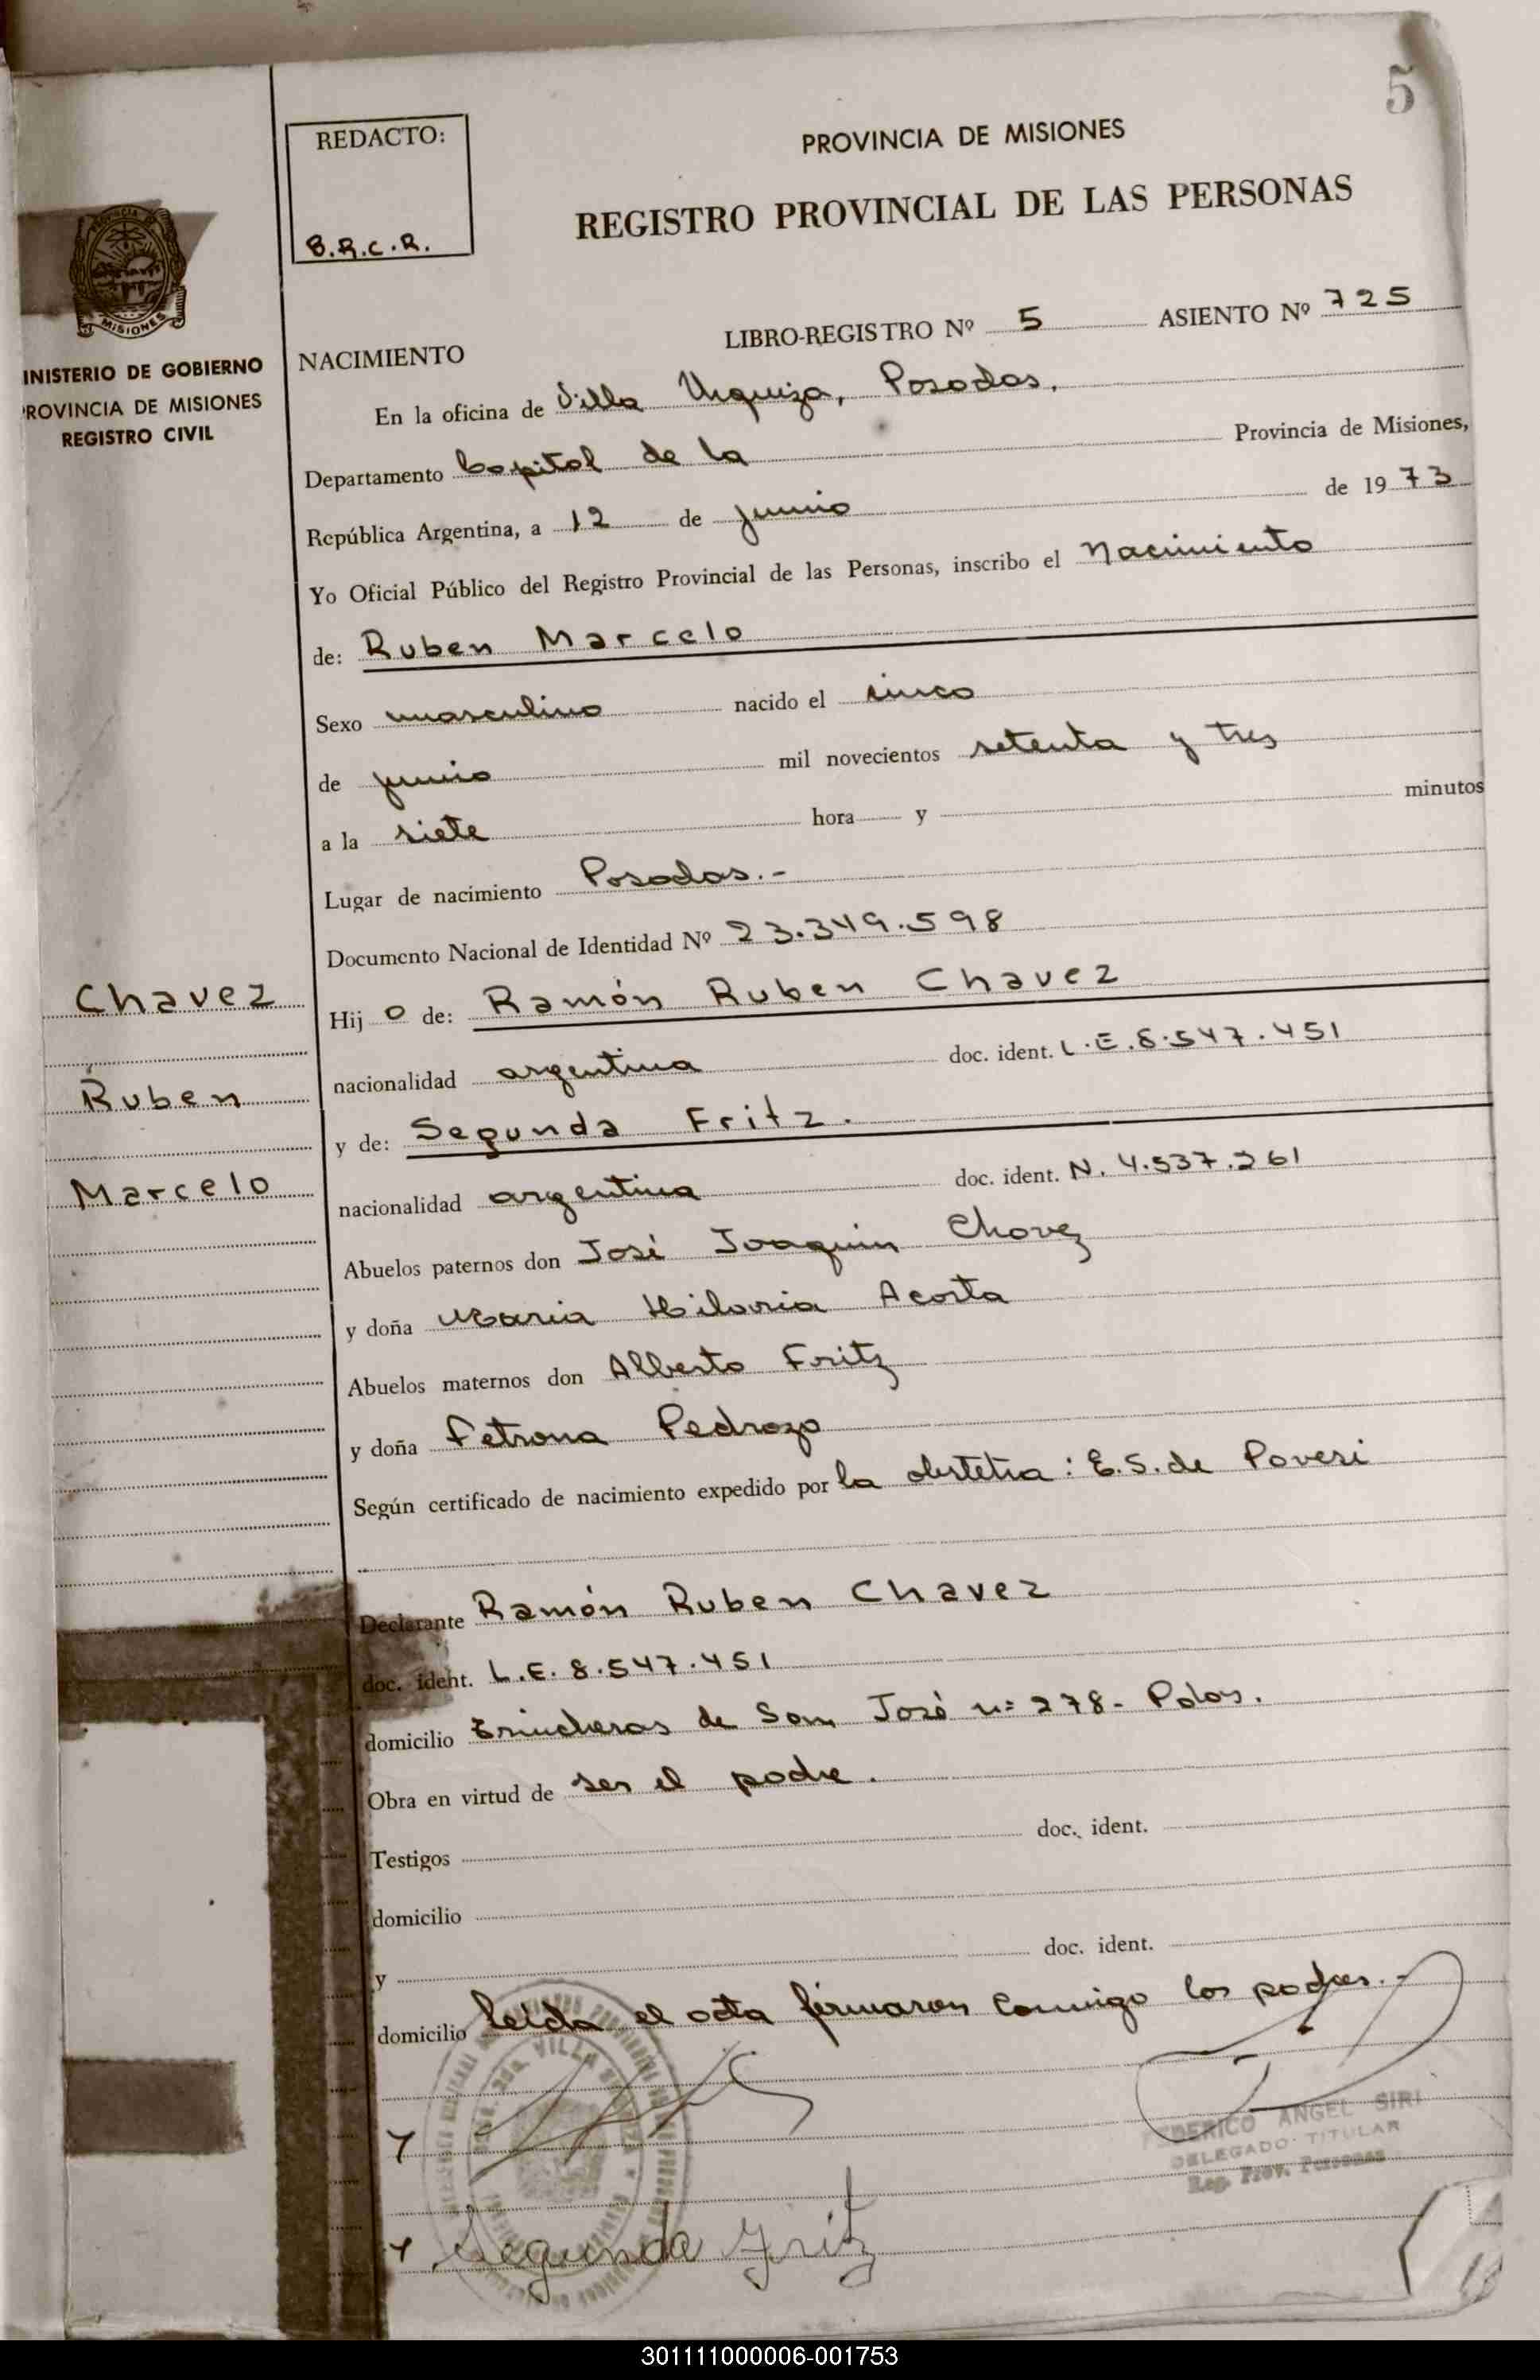 5
REDACTO:
B.R.C.R.
PROVINCIA DE MISIONES
REGISTRO PROVINCIAL DE LAS PERSONAS
MISIONES
INISTERIO DE GOBIERNO
ROVINCIA DE MISIONES
REGISTRO CIVIL
LIBRO-REGISTRO Nº 5 ASIENTO Nº 725
NACIMIENTO
En la oficina de Villa Urquiza, Posadas.
Departamento Capital de la Provincia de Misiones,
República Argentina, a 12 de junio de 1973
Yo Oficial Público del Registro Provincial de las Personas, inscribo el Nacimiento
de: Ruben Marcelo
Sexo masculino nacido el cinco
de junio mil novecientos setenta y tres
a la siete hora y minutos
Lugar de nacimiento Posadas.-
Documento Nacional de Identidad Nº 23.349.598
Chavez
Ruben
Marcelo
Hijo de: Ramón Ruben Chavez
nacionalidad argentina doc. ident. L.E.8.547.451
y de: Segunda Fritz.
nacionalidad argentina doc. ident. N. 4.537.261
Abuelos paternos don José Joaquin Chavez
y doña Maria Hilaria Acosta
Abuelos maternos don Alberto Fritz
y doña Petrona Pedrozo
Según certificado de nacimiento expedido por la obstetra: E.S. de Poversi
Declarante Ramón Ruben Chavez
doc. ident. L.E. 8.547.451
domicilio Trincheras de San José nº 278- Pdas.
Obra en virtud de ser el padre.
Testigos doc. ident.
domicilio
y doc. ident.
domicilio leida el acta firmaron conmigo los padres.-
FEDERICO ANGEL SIRI
DELEGADO TITULAR
Reg. Prov. Personas
Segunda Fritz
301111000006-001753